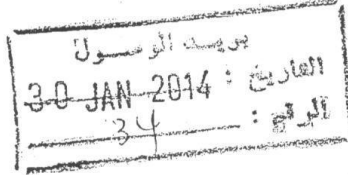 بريد الوصول
التاريخ : 30 JAN 2014
الرقم : 34